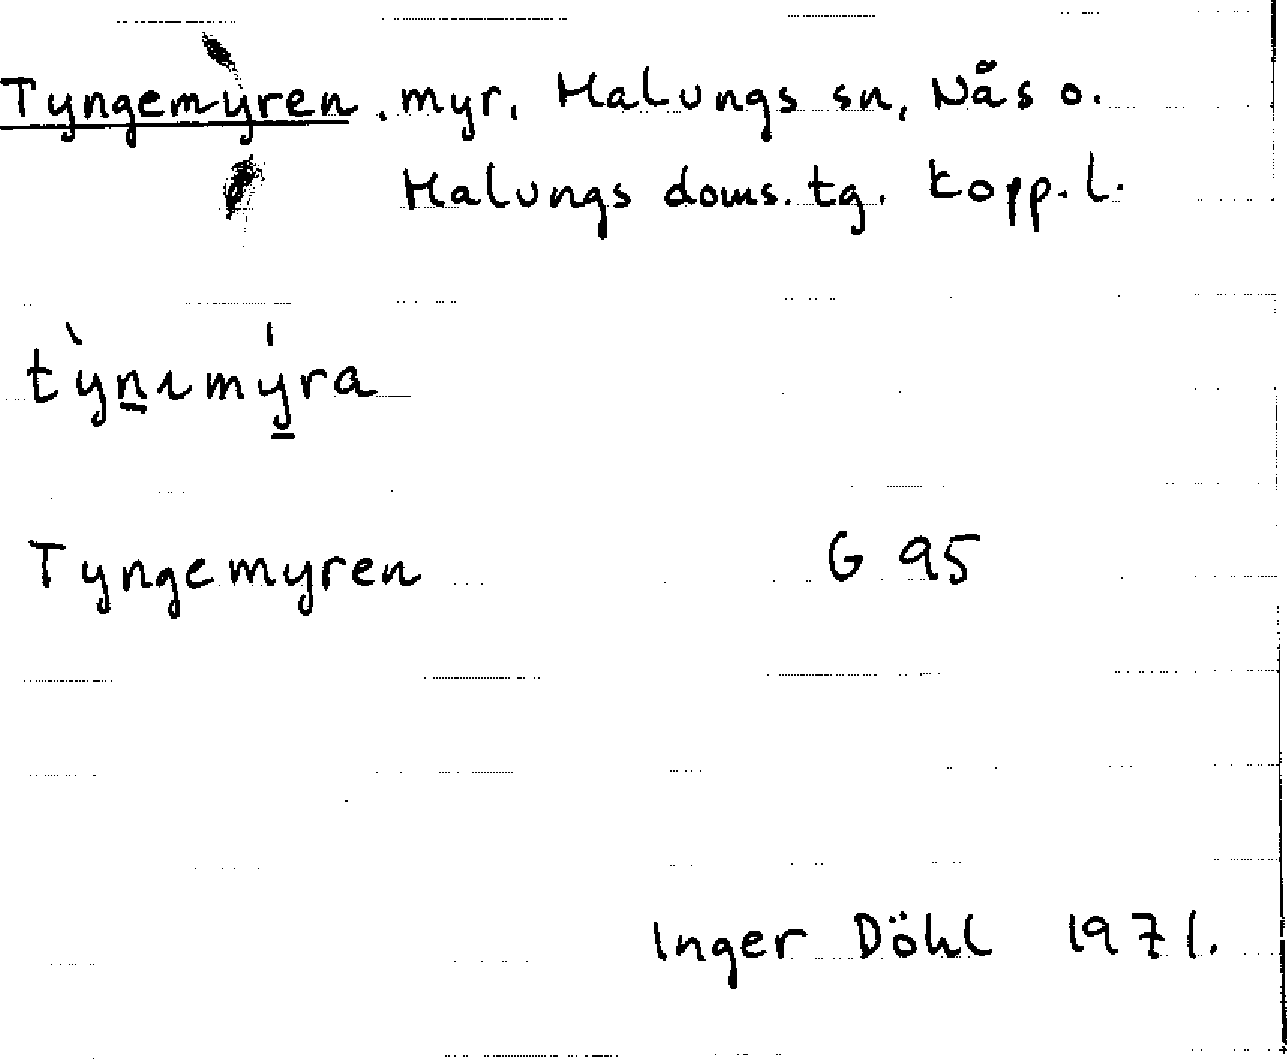 Tyngemyren, myr, Malungs sn, Näs o.
Malungs doms.tg. Kopp.l.
Tyngemyren G 95
Inger Döhl 1971.